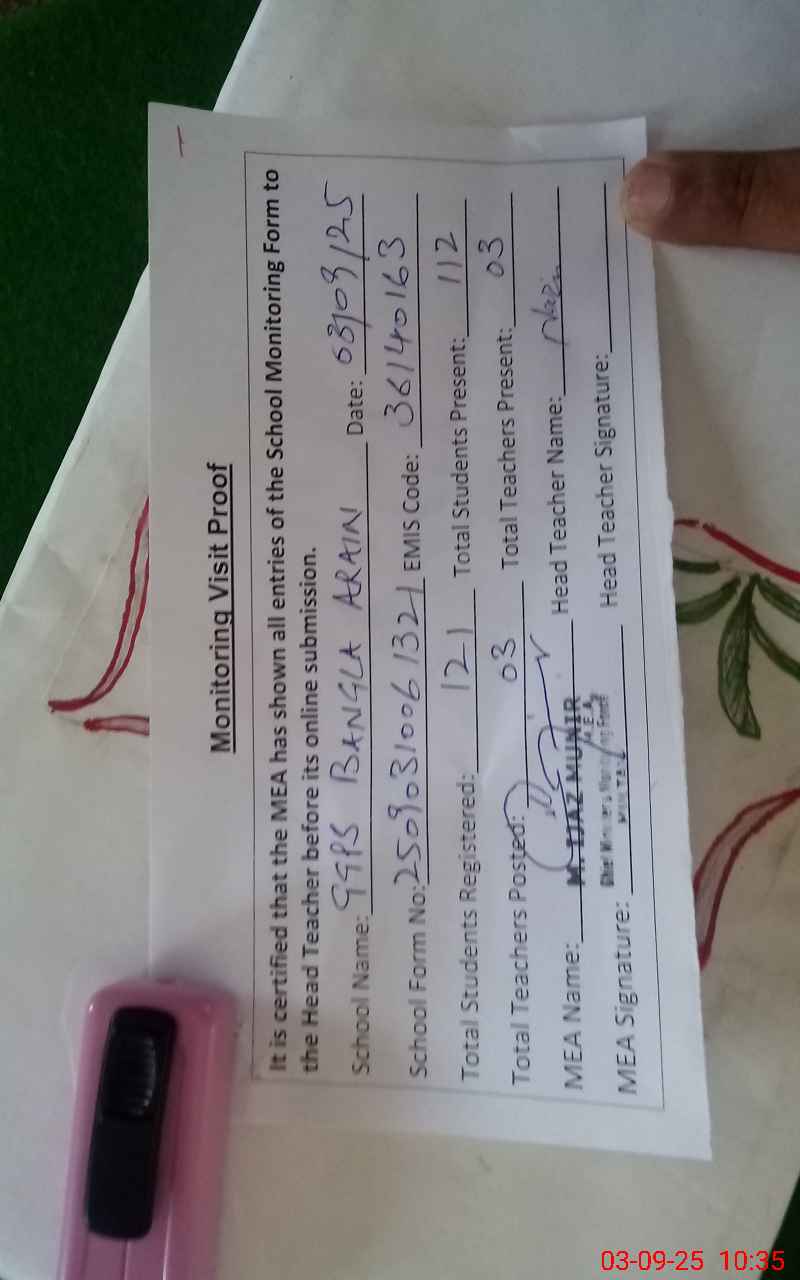 Monitoring Visit Proof
It is certified that the MEA has shown all entries of the School Monitoring Form to
the Head Teacher before its online submission.
School Name: GGPS BANGLA ARAIN Date: 03/09/25
School Form No: 25090310061321 EMIS Code: 36140163
Total Students Registered: 121 Total Students Present: 112
Total Teachers Posted: 03 Total Teachers Present: 03
MEA Name: M. IJAZ MUNIR Head Teacher Name:
M.E.A
Chief Minister's Monitoring Force
MEA Signature: Head Teacher Signature:
03-09-25 10:35